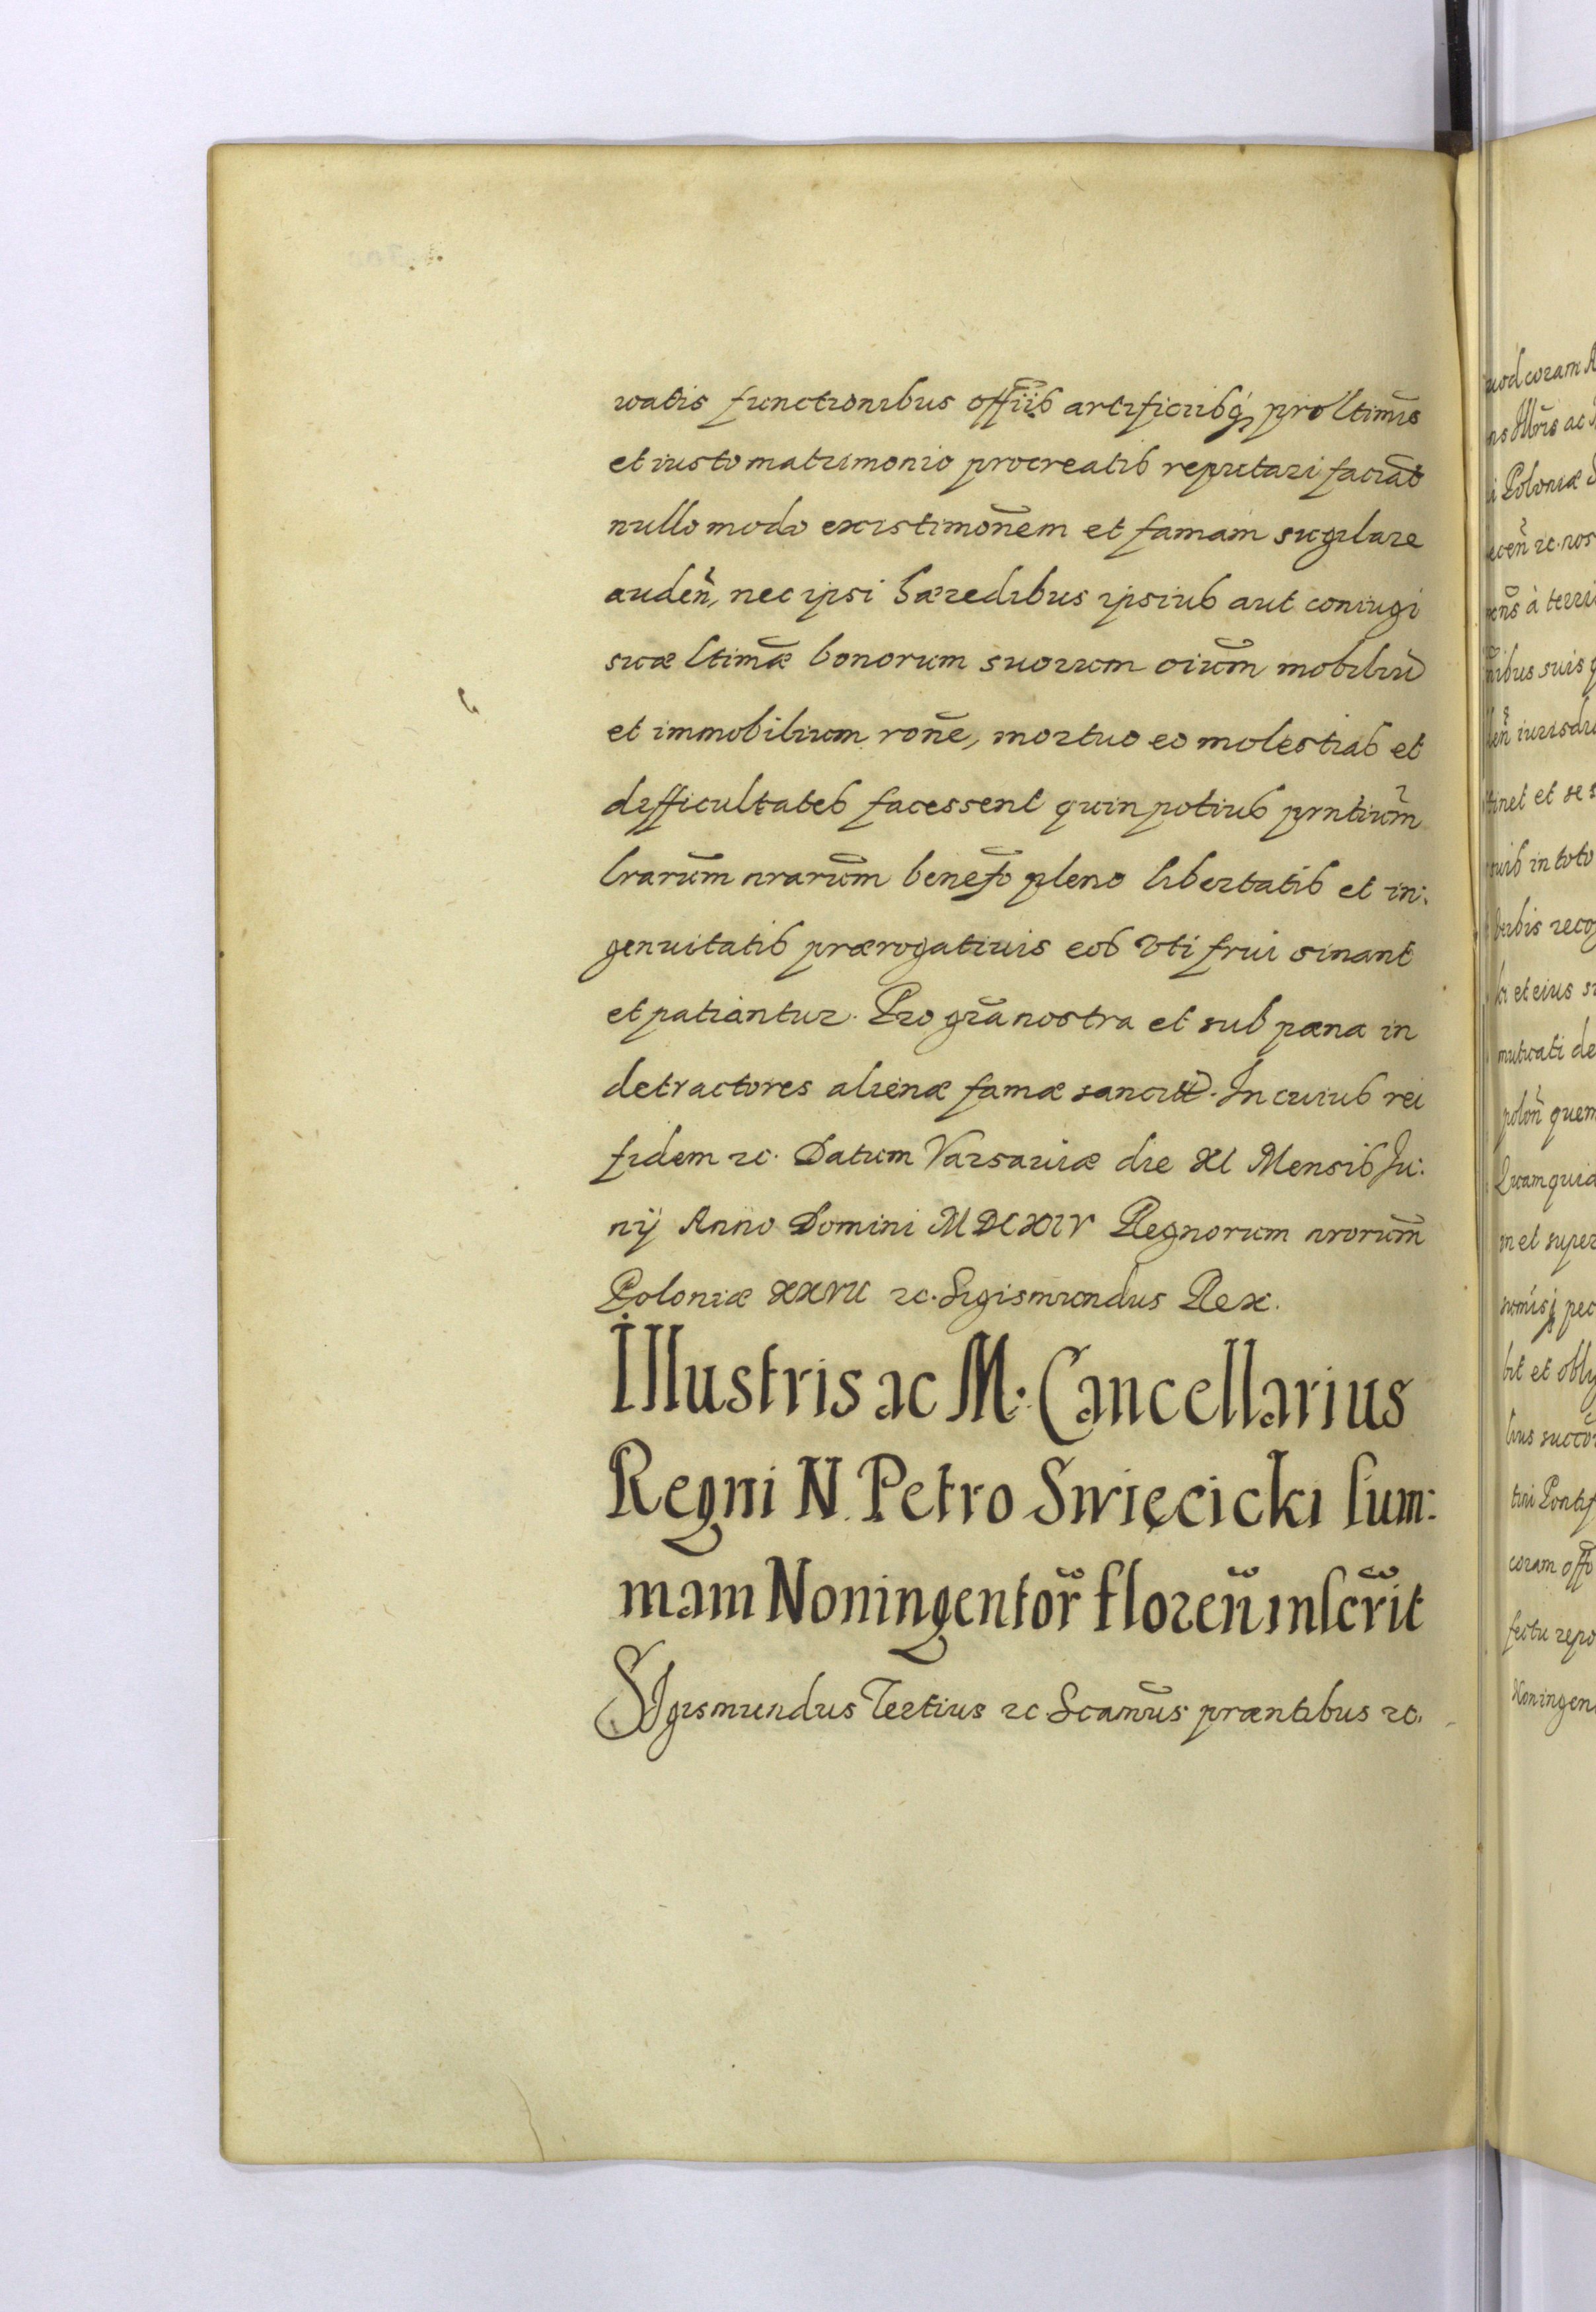 uatis functionibus offiis artificiibq́ꝫ pro ltim̃is
et iusto matrimonio procreatis reputari faciãt
nullo modo existimoñem et famam sugilare
audeñ, nec ipsi hæredibus ipsius aut coniugi
suæ ltim̃æ bonorum suorum oiũm mobiliũ
et immobilium roñe, mortuo eo molestias et
difficultates facessent quin potius prntiũm
lrarũm nrarũm benefõ pleno libertatis et in:
genuitatis prærogatiuis eos vti frui sinant
et patiantur. Pro gr̃a nostra et sub pæna in
detractores alienæ famæ sancitã. In cuius rei
fidem ꝛc. Datum Varsauiæ die XI Mensis Ju:
nÿ Anno Domini MDCXIV Regnorum nrorũm
Poloniæ XXVII ꝛc. Sigismundus Rex.
Illustris ac M. Cancellarius
Regni N. Petro Swięcicki sum:
mam Noningentor̃ floreñ inscr̃it
SIgismundus Tertius ꝛc. Scamũs præntibus ꝛc.
uod coram A
ns Mñis ac
i Poloniæ
eceñ ꝛc. nos
ens à terri
ñibus suis
leñ iurisdi
tinet et se
uis in toto
erbis reco
ei et eius
mutuati de
poloñ quem
Quam quid
m et super
nomis pec
bit et obli
lius
tini Pontif
coram offõ
fectu repo
Noningen